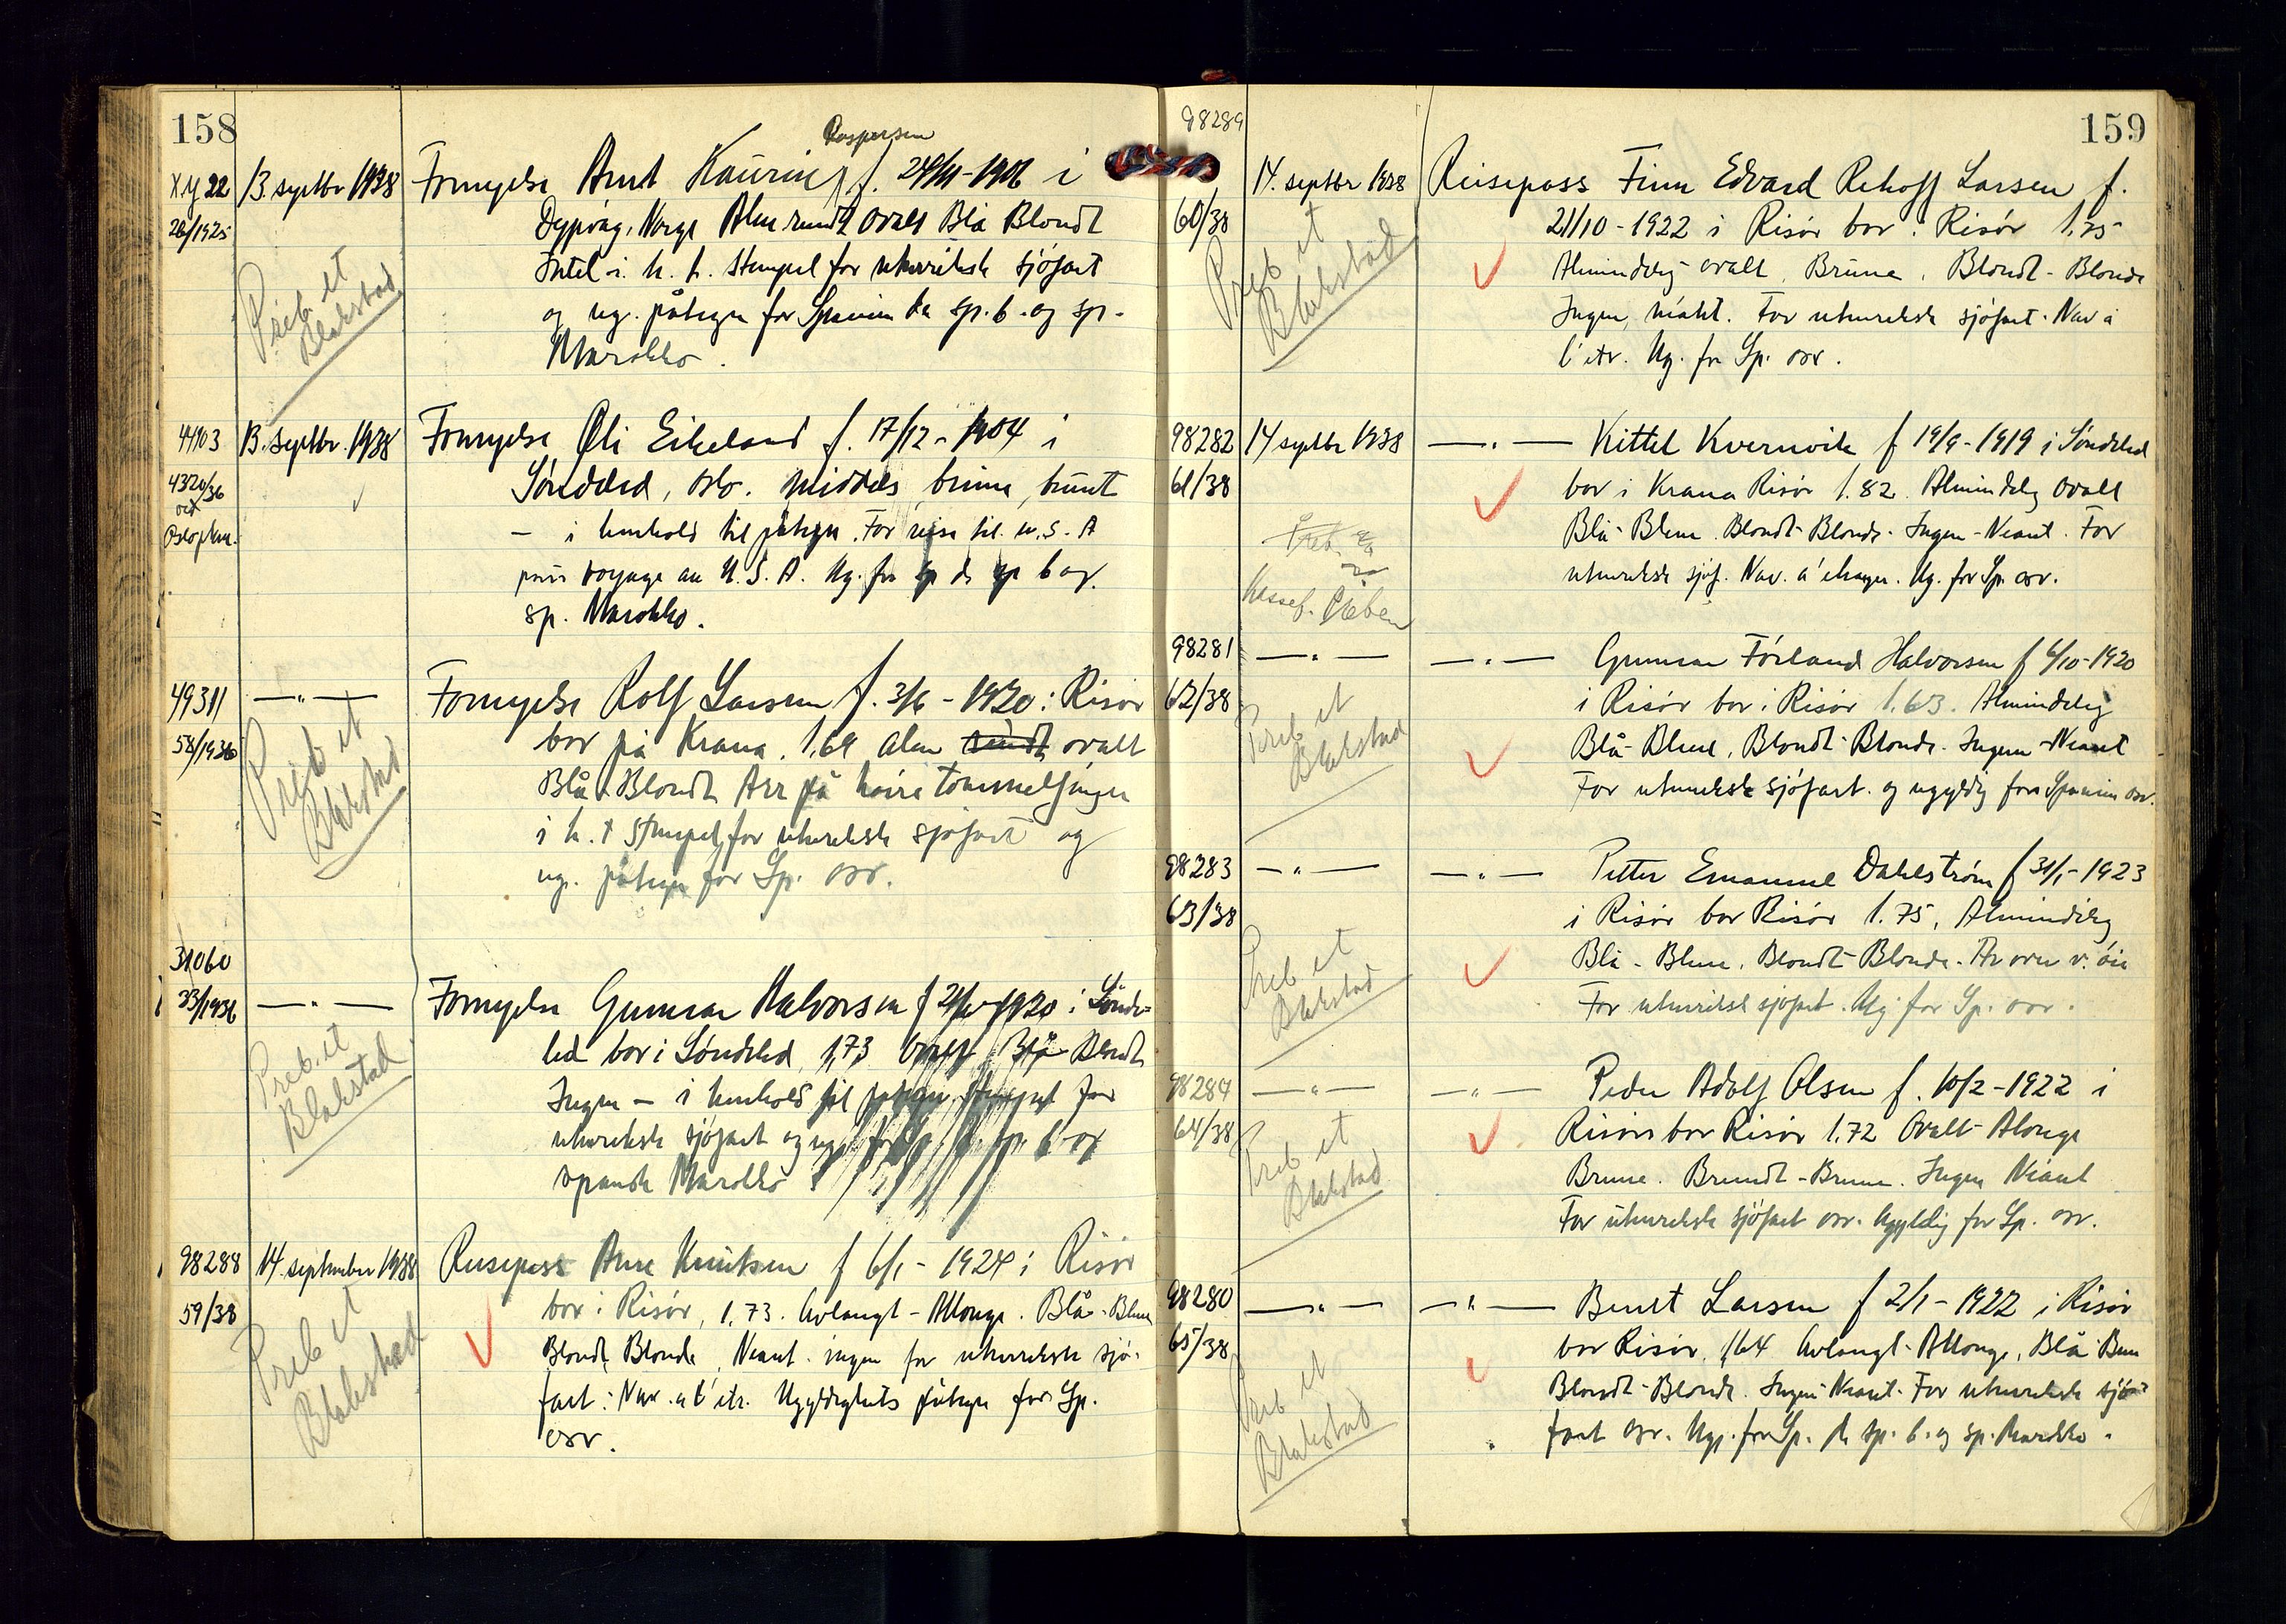 158
Kaspersen
X.Y 22 13. septbr 1938 Fornyelse Arnt Kaurin f. 24/11-1906 i
26/1925 Dypvåg, Norge Alm rundt ovalt Blå Blondt
Intet i. h. t. stempel for utenriksk sjøfart
og ug. påtegn for Spanien de sp. b. og sp.
Marokko.
Preb. et
Blakstad
44903 13. septbr. 1938 Fornyelse Oli Eikeland f. 17/12-1904 i
4320/36 Søndeled, Oslo. Middels, brune, brunt
ved
Oslo pkm. — i henhold til påtegn. For reise til U.S.A
pour voyage au U.S.A. Ug. for sp de sp b og
sp. Marokko.
49311 —"— Fornyelse Rolf Larsen f. 3/6-1920 i Risør
58/1936 bor på Krana. 1,69 Alm rundt ovalt
Blå Blondt Arr på høire tommelfinger
i h. t stempel for utenriksk sjøfart og
ug. påtegn for Sp. osv.
Preb et
Blakstad
31060
33/1936 —"— Fornyelse Gunnar Halvorsen f 1920 i Sønde-
led bor i Søndeled, 1,73 Ovalt Blå Blondt
Ingen — i henhold til påtegn. Stempel for
utenriksk sjøfart og ug. for Sp. de sp. b og
spansk Marokko
Preb. et
Blakstad
98288 14. september 1938 Reisepass Arne Knutsen f 6/1-1924 i Risør
59/38 bor i Risør, 1.73. Avlangt-Allonge. Blå-Bleue
Blondt Blonde, Neant. ingen for utenriksk sjø-
fart: Nav. a l'etr. Ugyldighets påtegn for Sp.
osv.
Preb et
Blakstad
159
98289 14. septbr 1938 Reisepass Finn Edvard Rehoff Larsen f.
60/38 21/10-1922 i Risør bor i Risør 1.75
Almindelig ovalt, Brune, Blondt-Blonde
Ingen, néant. For utenriksk sjøfart. Nav a
l'etr. Ug. for Sp. osv.
Preb et
Blakstad
98282 14 septbr 1938 —"— Kittel Kvernvik f 19/9-1919 i Søndeled
61/38 bor i Krana Risør 1.82. Almindelig Ovalt
Blå-Bleue. Blondt-Blonde. Ingen-Neant. For
utenriksk sjøf. Nav. a'etranger. Ug. for Sp. osv.
98281 —"— —"— Gunnar Førland Halvorsen f 6/10-1920
62/38 i Risør bor i Risør 1.63. Almindelig
Blå-Bleue, Blondt-Blonde. Ingen-Neant
For utenriksk sjøfart. og ugyldig for Spanien osv.
Preb et
Blakstad
98283 —"— —"— Petter Emanuel Dahlstrøm f 31/1-1923
63/38 i Risør bor Risør 1.75, Almindelig
Blå-Bleue, Blondt-Blonde. Arr over v. øie
For utenriksk sjøfart. Ug for Sp. osv.
Preb et
Blakstad
98284 —"— —"— Peder Adolf Olsen f. 10/2-1922 i
64/38 Risør bor Risør 1.72 Ovalt-Alonge
Brune. Brundt-Brune. Ingen Néant
For utenriksk sjøfart osv. Ugyldig for Sp. osv.
Preb et
Blakstad
98280 —"— —"— Bernt Larsen f 2/1-1922 i Risør
65/38 bor Risør, 1,64 Avlangt-Allonge, Blå-Bleu
Blondt-Blonde. Ingen-Neant. For utenriksk sjø-
fart osv. Ugy. for Sp. de sp. b. og sp. Marokko.
Preb et
Blakstad